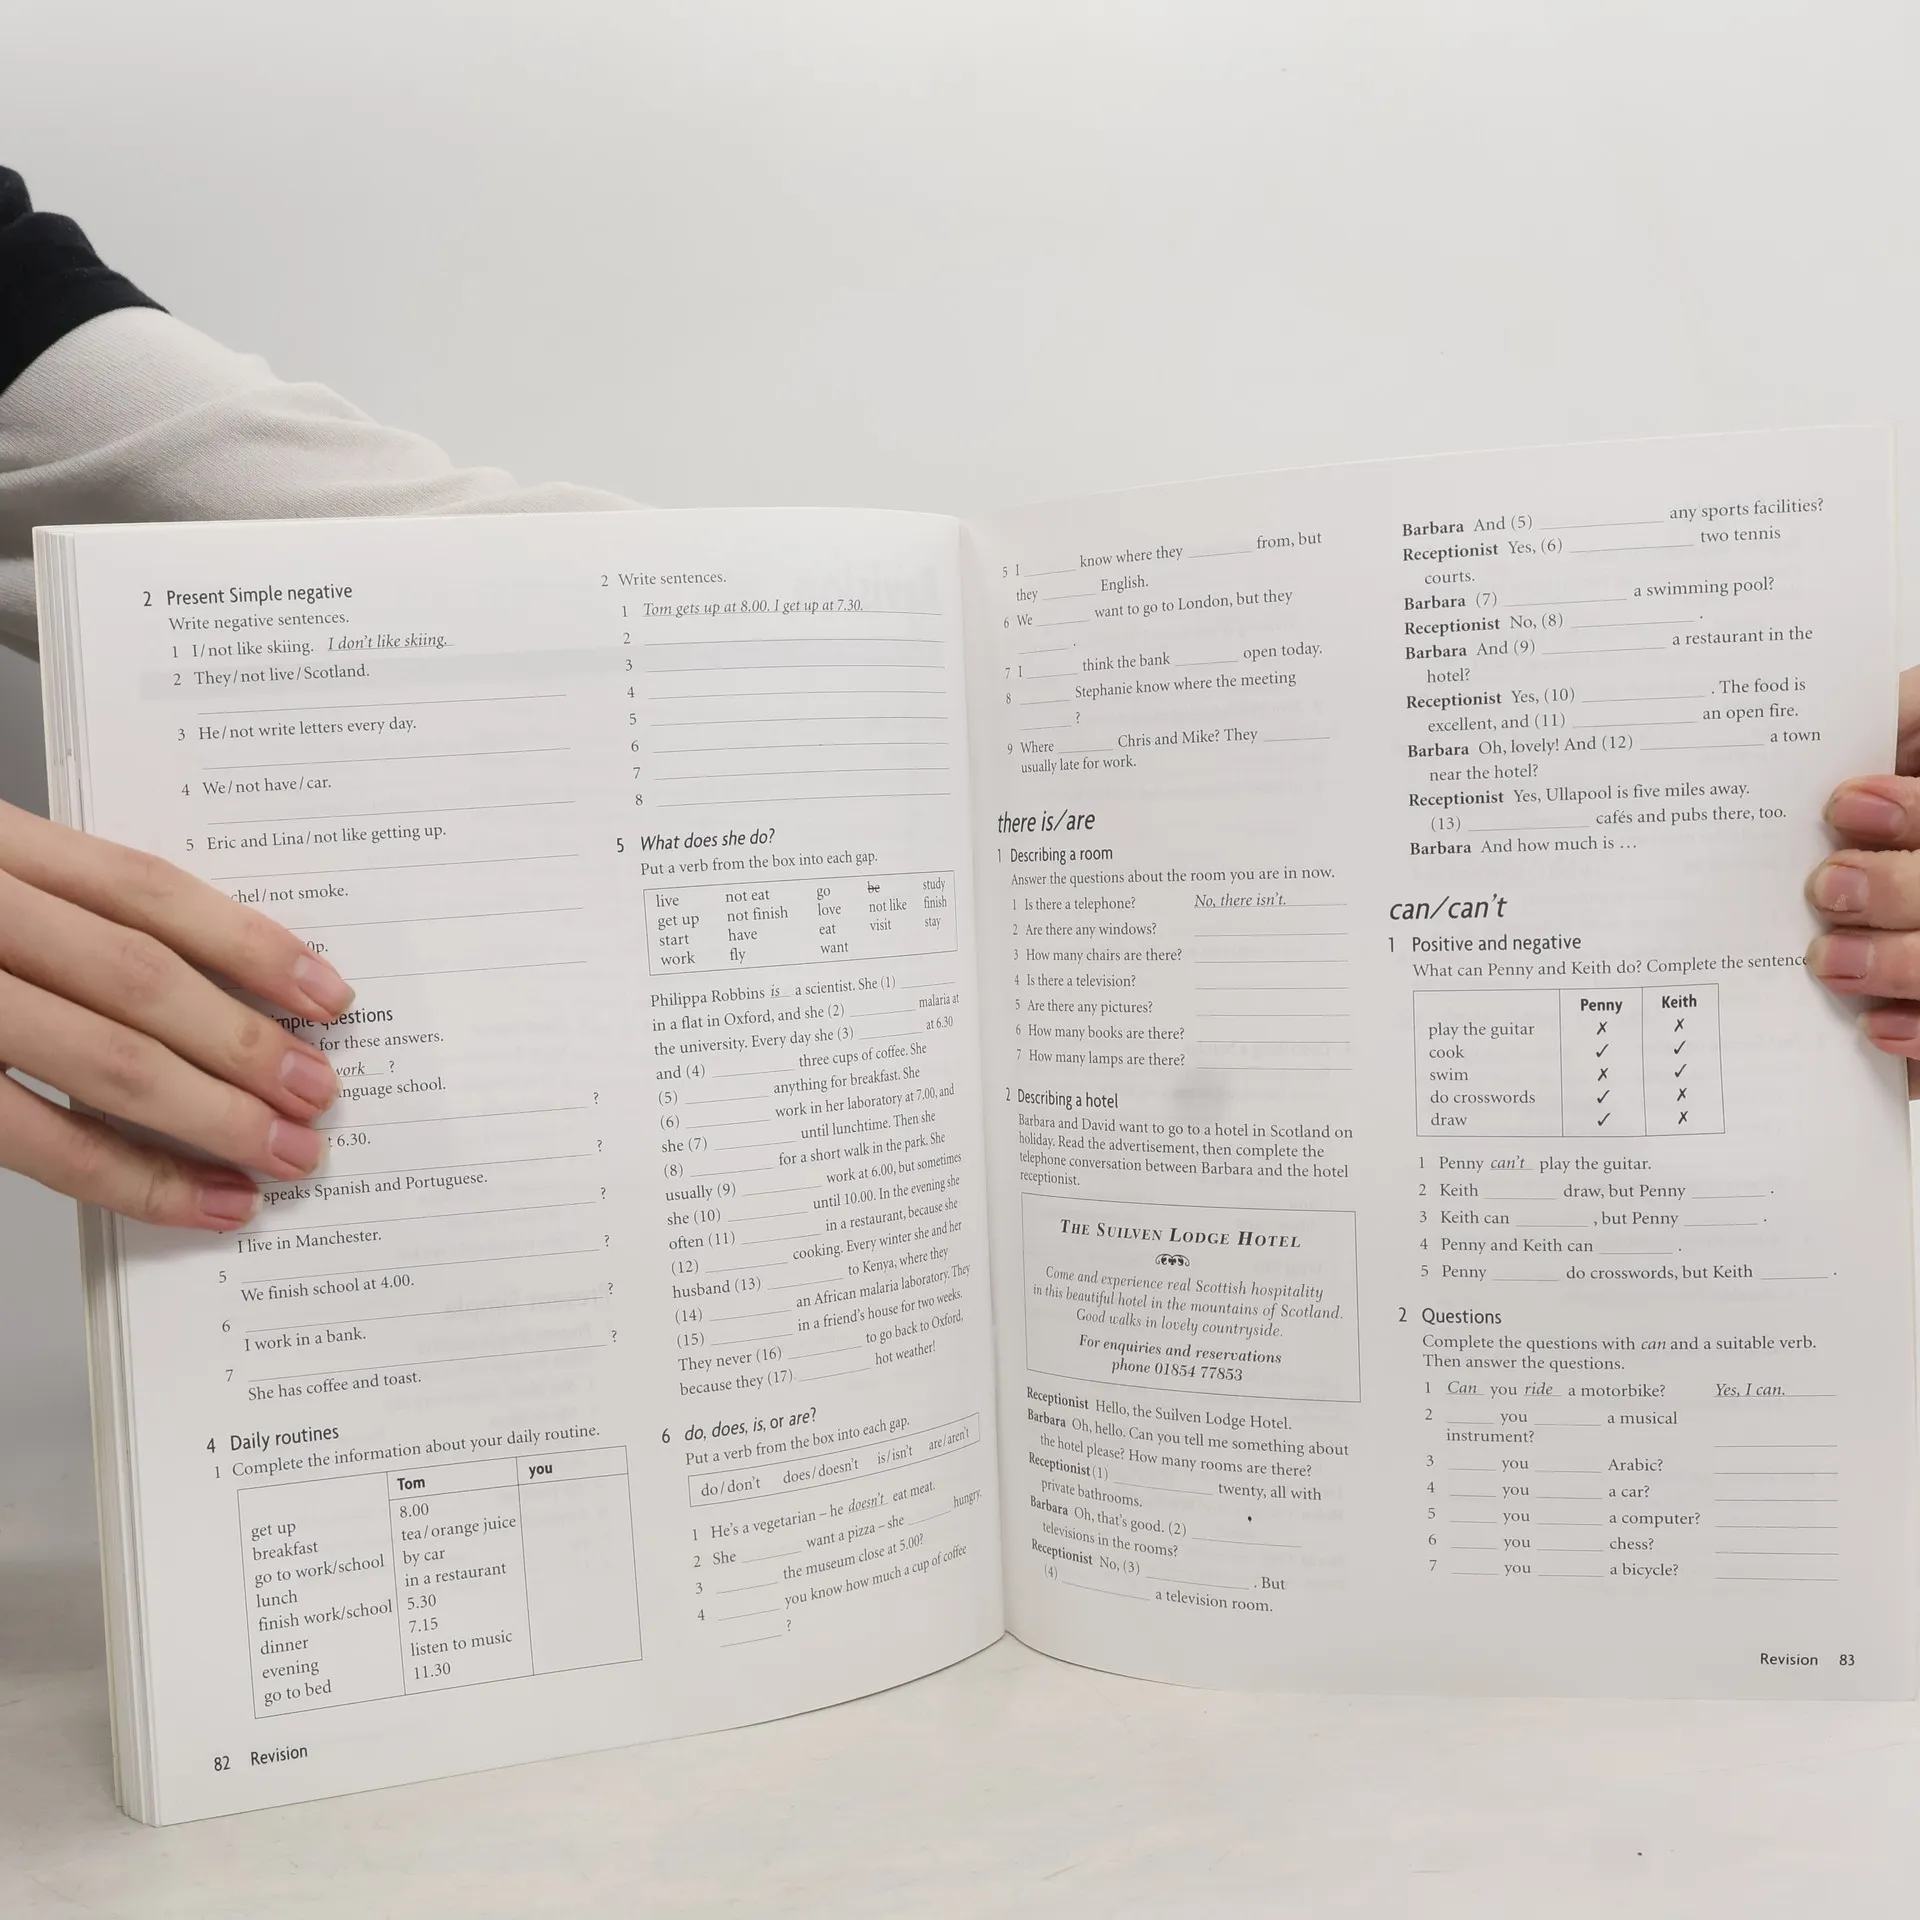 2 Present Simple negative
Write negative sentences.
1 I/not like skiing. I don't like skiing.
2 They/not live/Scotland.
3 He/not write letters every day.
4 We/not have/car.
5 Eric and Lina/not like getting up.
/not smoke.
questions
for these answers.
work ?
school.
?
6.30.
?
speaks Spanish and Portuguese.
?
I live in Manchester.
5 ?
We finish school at 4.00.
6 ?
I work in a bank.
7 ?
She has coffee and toast.
4 Daily routines
1 Complete the information about your daily routine.
Tom you
get up 8.00
breakfast tea/orange juice
go to work/school by car
lunch in a restaurant
finish work/school 5.30
dinner 7.15
evening listen to music
go to bed 11.30
82 Revision
2 Write sentences.
1 Tom gets up at 8.00. I get up at 7.30.
2
3
4
5
6
7
8
5 What does she do?
Put a verb from the box into each gap.
live not eat go be study
get up not finish love not like finish
start have eat visit stay
work fly want
Philippa Robbins is a scientist. She (1)
in a flat in Oxford, and she (2) malaria at
the university. Every day she (3) at 6.30
and (4) three cups of coffee. She
(5) anything for breakfast. She
(6) work in her laboratory at 7.00, and
she (7) until lunchtime. Then she
(8) for a short walk in the park. She
usually (9) work at 6.00, but sometimes
she (10) until 10.00. In the evening she
often (11) in a restaurant, because she
(12) cooking. Every winter she and her
husband (13) to Kenya, where they
(14) an African malaria laboratory. They
(15) in a friend's house for two weeks.
They never (16) to go back to Oxford,
because they (17) hot weather!
6 do, does, is, or are?
Put a verb from the box into each gap.
do/don't does/doesn't is/isn't are/aren't
1 He's a vegetarian – he doesn't eat meat.
2 She want a pizza – she hungry.
3 the museum close at 5.00?
4 you know how much a cup of coffee
?
5 I know where they from, but
they English.
6 We want to go to London, but they
.
7 I think the bank open today.
8 Stephanie know where the meeting
?
9 Where Chris and Mike? They
usually late for work.
there is/are
1 Describing a room
Answer the questions about the room you are in now.
1 Is there a telephone? No, there isn't.
2 Are there any windows?
3 How many chairs are there?
4 Is there a television?
5 Are there any pictures?
6 How many books are there?
7 How many lamps are there?
2 Describing a hotel
Barbara and David want to go to a hotel in Scotland on
holiday. Read the advertisement, then complete the
telephone conversation between Barbara and the hotel
receptionist.
THE SUILVEN LODGE HOTEL
Come and experience real Scottish hospitality
in this beautiful hotel in the mountains of Scotland.
Good walks in lovely countryside.
For enquiries and reservations
phone 01854 77853
Receptionist Hello, the Suilven Lodge Hotel.
Barbara Oh, hello. Can you tell me something about
the hotel please? How many rooms are there?
Receptionist (1) twenty, all with
private bathrooms.
Barbara Oh, that's good. (2)
televisions in the rooms?
Receptionist No, (3) . But
(4) a television room.
Barbara And (5) any sports facilities?
Receptionist Yes, (6) two tennis
courts.
Barbara (7) a swimming pool?
Receptionist No, (8) .
Barbara And (9) a restaurant in the
hotel?
Receptionist Yes, (10) . The food is
excellent, and (11) an open fire.
Barbara Oh, lovely! And (12) a town
near the hotel?
Receptionist Yes, Ullapool is five miles away.
(13) cafés and pubs there, too.
Barbara And how much is …
can/can't
1 Positive and negative
What can Penny and Keith do? Complete the sentence
Penny Keith
play the guitar ✗ ✗
cook ✓ ✓
swim ✗ ✓
do crosswords ✓ ✗
draw ✓ ✗
1 Penny can't play the guitar.
2 Keith draw, but Penny .
3 Keith can , but Penny .
4 Penny and Keith can .
5 Penny do crosswords, but Keith .
2 Questions
Complete the questions with can and a suitable verb.
Then answer the questions.
1 Can you ride a motorbike? Yes, I can.
2 you a musical
instrument?
3 you Arabic?
4 you a car?
5 you a computer?
6 you chess?
7 you a bicycle?
Revision 83